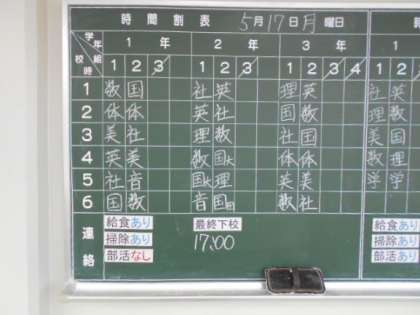 時間割表 5月17日月曜日
学年 1年 2年 3年 1
校時 組 1 2 3 1 2 3 1 2 3 4 1
1 数 国 社 英 理 英 社 理
2 体 体 英 社 国 数 理 英
3 美 社 理 数 社 国 美 国
4 英 美 数 国 体 体 数 理
5 社 音 国 理 英 美 学 学
6 国 数 音 国 数 社
連絡
給食あり 最終下校 給食あり
掃除あり 17:00 掃除あり
部活なし 部活あり